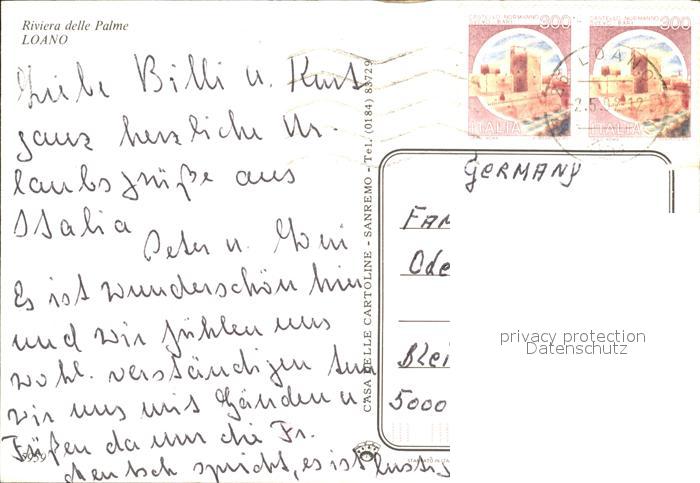 Riviera delle Palme
LOANO
Liebe Billi u. Kurt
ganz herzliche Ur-
laubsgrüße aus
Italia
Peter u.
Es ist wunderschön hier
und wir fühlen uns
wohl. verständigen tun
wir uns mit Händen u
Füßen da nur die Fr.
deutsch spricht, es ist lustig
CASA DELLE CARTOLINE - SANREMO - Tel. (0184) 83729
CASTELLO NORMANNO
SVEVO - BARI
300
ITALIA
CASTELLO NORMANNO
SVEVO - BARI
300
ITALIA
LOANO
GERMANY
FAM
Ode
Blei
5000
privacy protection
Datenschutz